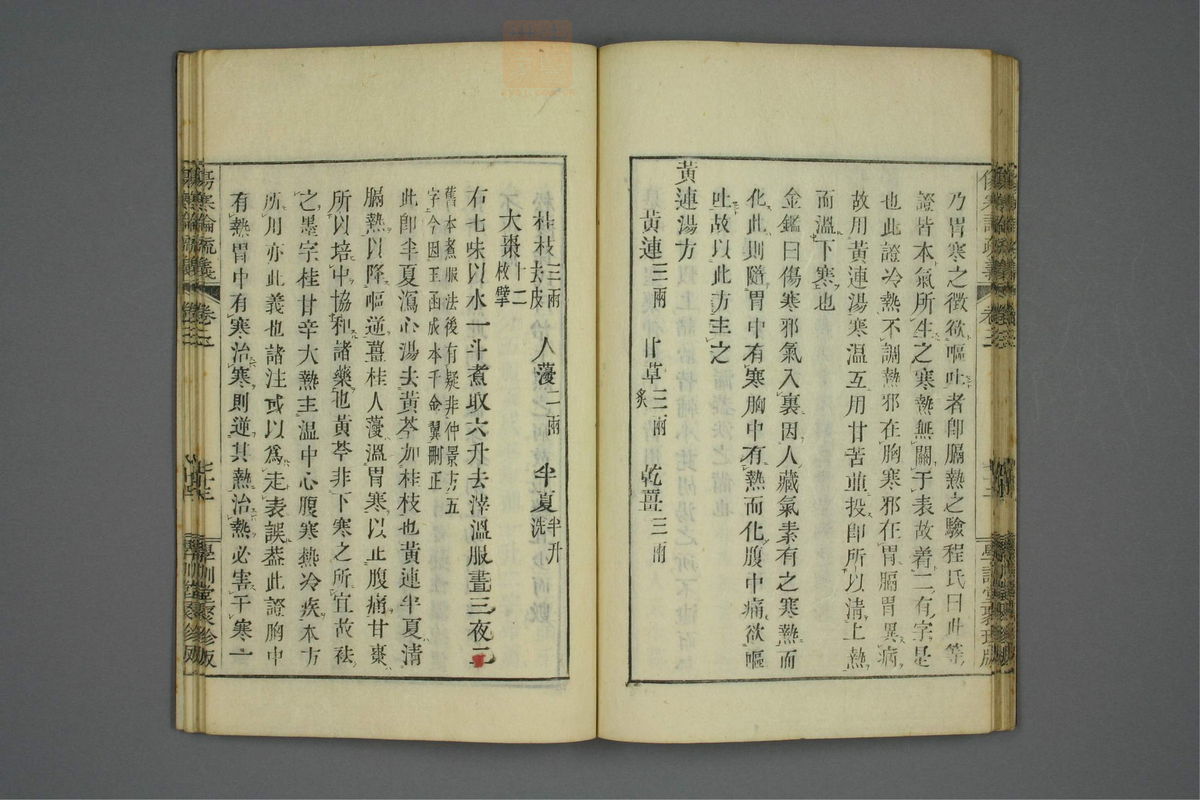 乃胃寒之徵欲嘔吐者卽膈熱之驗程氏曰此等
證皆本氣所生之寒熱無關于表故着二有字是
也此證冷熱不調熱邪在胸寒邪在胃膈胃異病
故用黃連湯寒溫互用甘苦並投卽所以淸上熱
而溫下寒也
金鑑曰傷寒邪氣入裏因人藏氣素有之寒熱而
化此則隨胃中有寒胸中有熱而化腹中痛欲嘔
吐故以此方主之
黃連湯方
黃連三兩 甘草三兩炙 乾薑三兩
桂枝三兩去皮 人薓二兩 半夏半升洗
大棗十二枚擘
右七味以水一斗煮取六升去滓溫服晝三夜二
舊本煮服法後有疑非仲景方五
字今因玉函成本千金翼刪正
此卽半夏瀉心湯去黃芩加桂枝也黃連半夏淸
膈熱以降嘔逆薑桂人薓溫胃寒以止腹痛甘棗
所以培中協和諸藥也黃芩非下寒之所宜故袪
之墨字桂甘辛大熱主溫中心腹寒熱冷疾本方
所用亦此義也諸注或以爲走表誤葢此證胸中
有熱胃中有寒治寒則逆其熱治熱必害于寒一
傷寒論疏義
卷三
七十三
學訓堂聚珍版